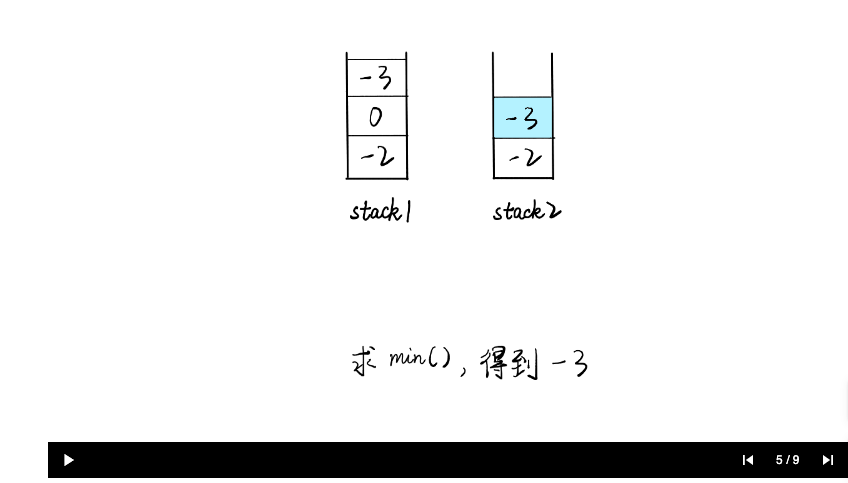 -3
0 -3
-2 -2
stack1 stack2
求 min(), 得到 -3
5 / 9